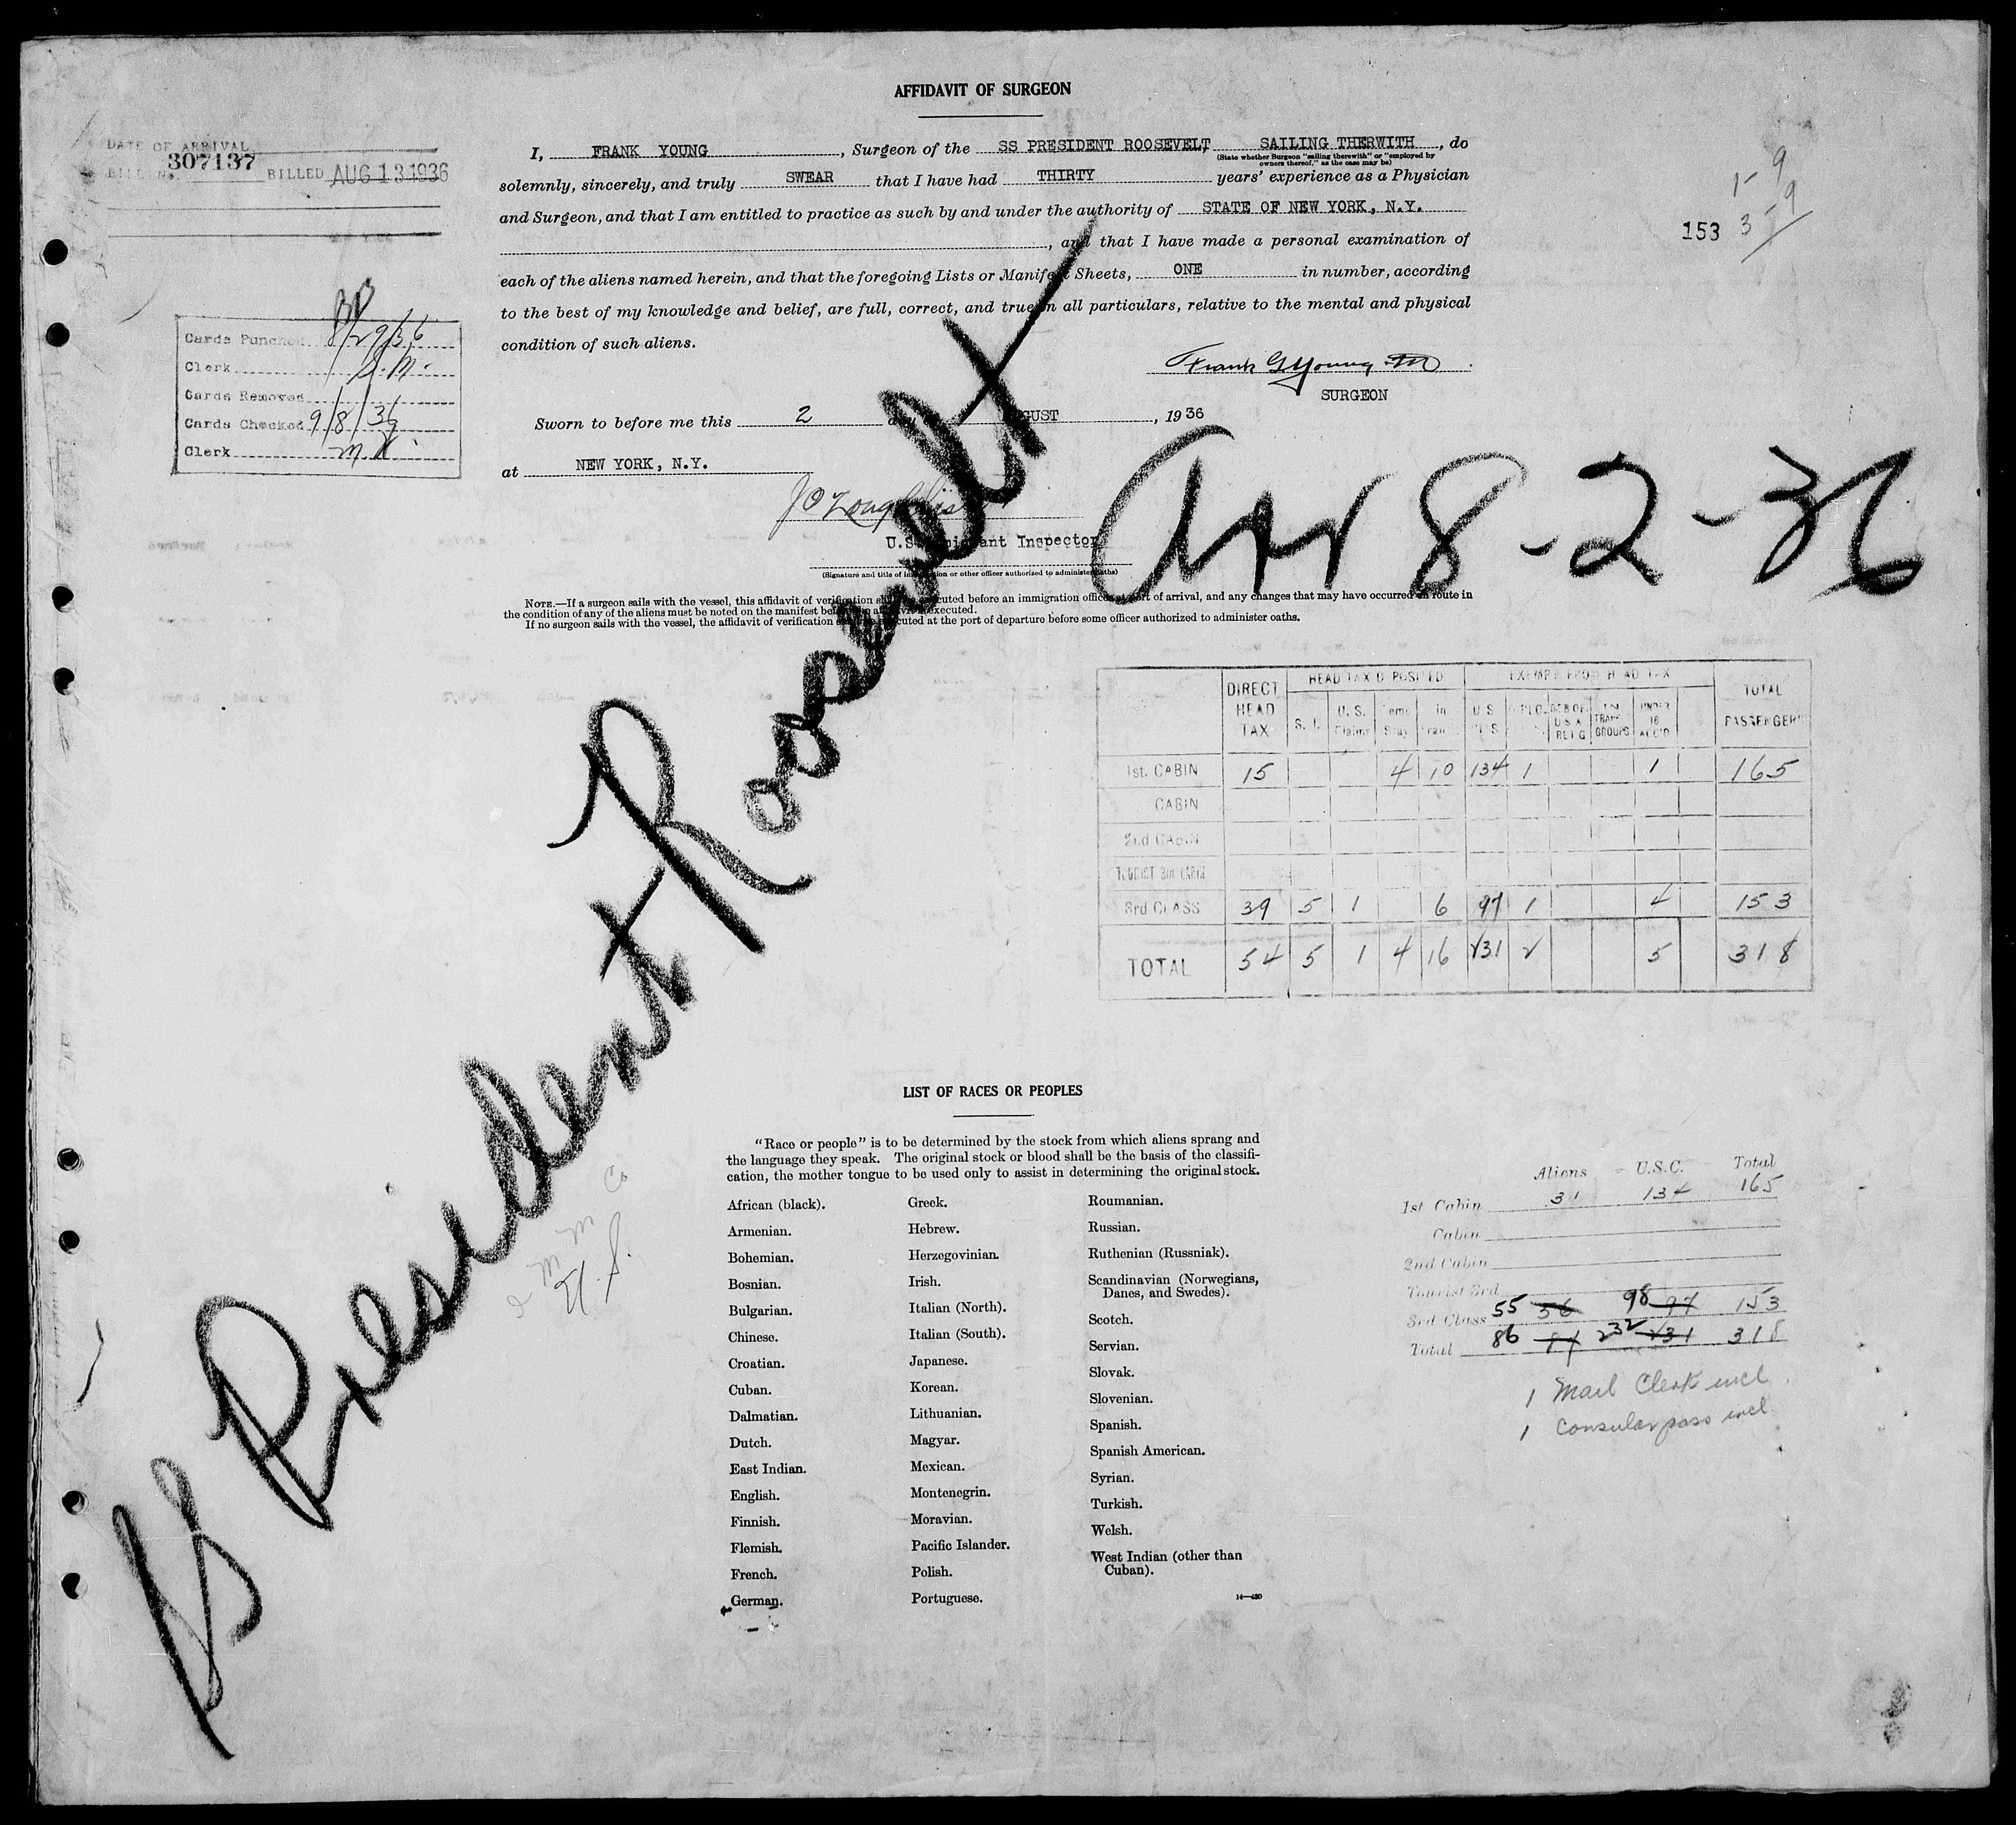 AFFIDAVIT OF SURGEON
DATE OF ARRIVAL
BILL No. 307137 BILLED AUG 13 1936
I, FRANK YOUNG, Surgeon of the SS PRESIDENT ROOSEVELT SAILING THERWITH, do
(State whether Surgeon "sailing therewith" or "employed by
owners thereof," as the case may be)
solemnly, sincerely, and truly SWEAR that I have had THIRTY years' experience as a Physician
and Surgeon, and that I am entitled to practice as such by and under the authority of STATE OF NEW YORK, N.Y.
, and that I have made a personal examination of
each of the aliens named herein, and that the foregoing Lists or Manifest Sheets, ONE in number, according
to the best of my knowledge and belief, are full, correct, and true in all particulars, relative to the mental and physical
condition of such aliens.
1-9
153 3-9
Cards Punched 8/29/36
Clerk S.M.
Cards Removed
Cards Checked 9/8/36
Clerk
Frank G Young MD
SURGEON
Sworn to before me this 2 day AUGUST, 1936
at NEW YORK, N.Y.
U.S. Immigrant Inspector
(Signature and title of immigration or other officer authorized to administer oaths)
Arr 8-2-36
NOTE.—If a surgeon sails with the vessel, this affidavit of verification shall be executed before an immigration officer at port of arrival, and any changes that may have occurred en route in
the condition of any of the aliens must be noted on the manifest before the affidavit is executed.
If no surgeon sails with the vessel, the affidavit of verification shall be executed at the port of departure before some officer authorized to administer oaths.
SS President Roosevelt
DIRECT HEAD TAX HEAD TAX DEPOSITED EXEMPT FROM HEAD TAX TOTAL PASSENGERS
S. I. U. S. Claims Temp Stay in Trans U S CITS DIPLO. RES OF U S A RET G TRANS GROUPS UNDER 16 ACC'D
1st. CABIN 15 4 10 134 1 1 165
CABIN
2nd CABIN
TOURIST 3rd CABIN
3rd CLASS 39 5 1 6 97 1 4 153
TOTAL 54 5 1 4 16 231 2 5 318
LIST OF RACES OR PEOPLES
"Race or people" is to be determined by the stock from which aliens sprang and
the language they speak. The original stock or blood shall be the basis of the classifi-
cation, the mother tongue to be used only to assist in determining the original stock.
African (black).
Armenian.
Bohemian.
Bosnian.
Bulgarian.
Chinese.
Croatian.
Cuban.
Dalmatian.
Dutch.
East Indian.
English.
Finnish.
Flemish.
French.
German.
Greek.
Hebrew.
Herzegovinian.
Irish.
Italian (North).
Italian (South).
Japanese.
Korean.
Lithuanian.
Magyar.
Mexican.
Montenegrin.
Moravian.
Pacific Islander.
Polish.
Portuguese.
Roumanian.
Russian.
Ruthenian (Russniak).
Scandinavian (Norwegians,
Danes, and Swedes).
Scotch.
Servian.
Slovak.
Slovenian.
Spanish.
Spanish American.
Syrian.
Turkish.
Welsh.
West Indian (other than
Cuban).
14—430
Aliens U.S.C. Total
1st Cabin 31 134 165
Cabin
2nd Cabin
Tourist 3rd
3rd Class 55 56 98 97 153
Total 86 87 232 231 318
1 Mail Clerk incl.
1 Consular pass incl